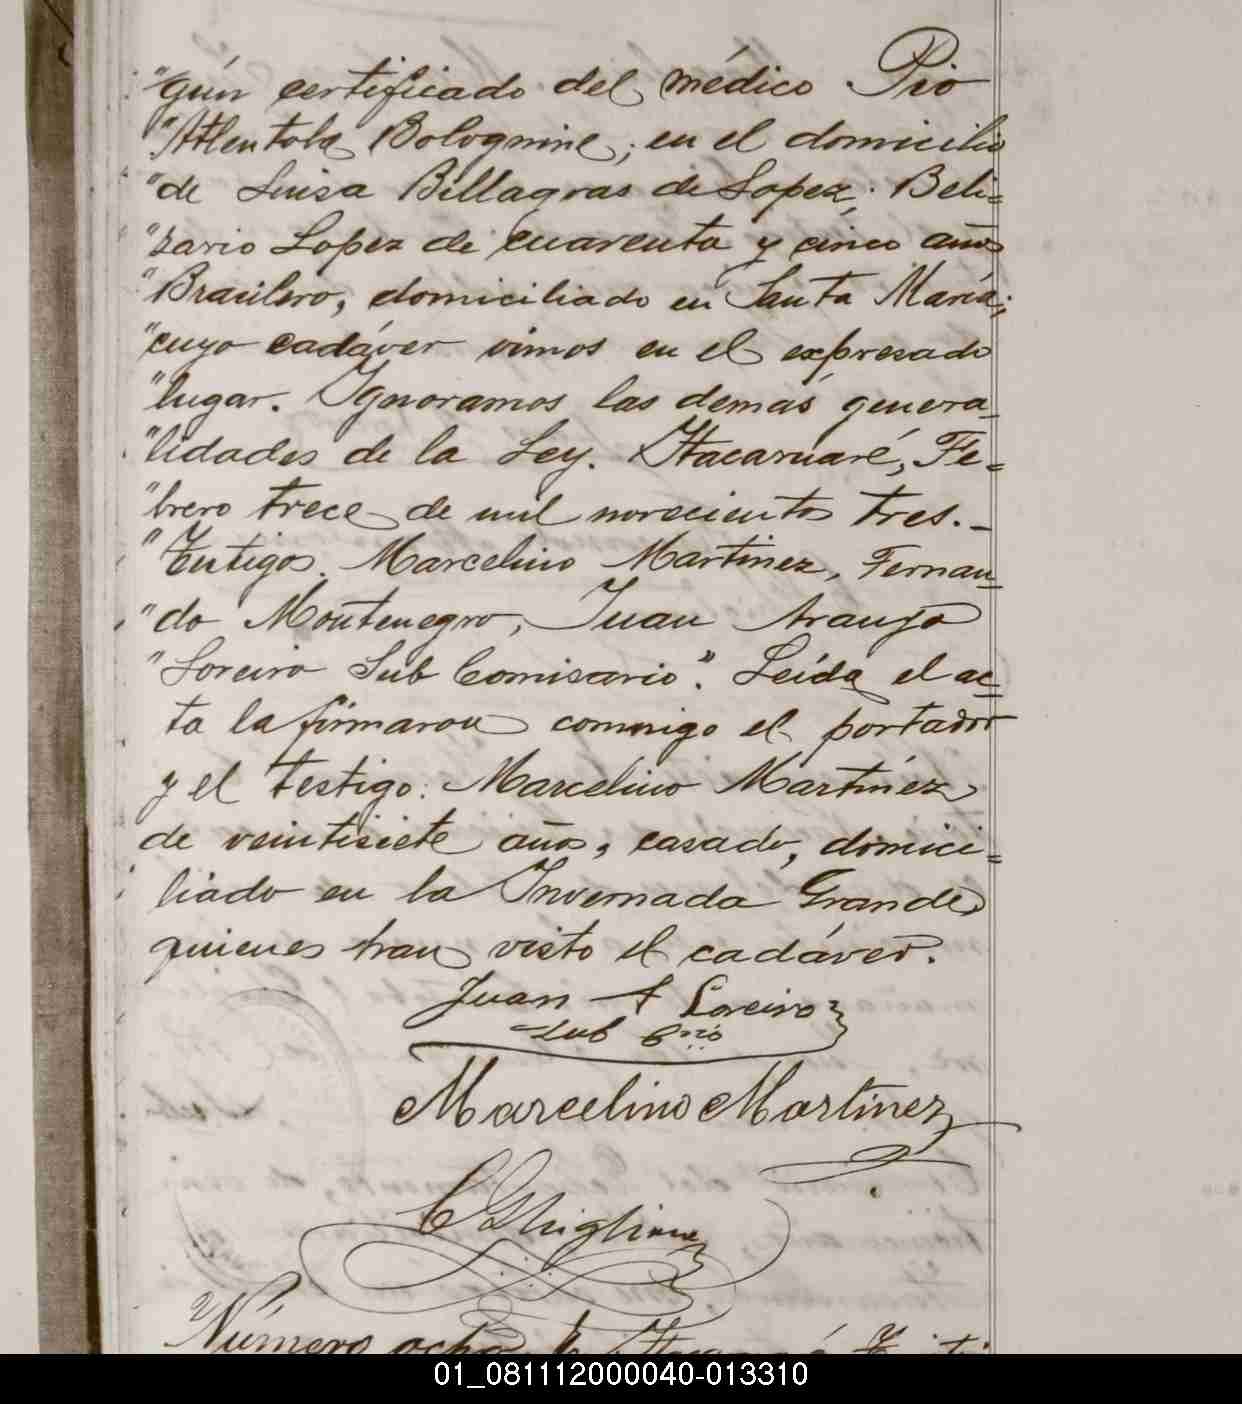 "gún certificado del médico Pio
" Bolognine, en el domicilio
"de Luisa Billagras de Lopez. Beli=
"zario Lopez de cuarenta y cinco años
"Brasilero, domiciliado en Santa María;
"cuyo cadáver vimos en el expresado
"lugar. Ignoramos las demás genera_
"lidades de la Ley. Itacaruaré, Fe=
"brero trece de mil novecientos tres._
"Testigos. Marcelino Martinez, Fernan_
"do Montenegro, Juan Araujo
"Loreiro Sub Comisario". Leída el ac_
ta la firmaron conmigo el portador
y el testigo: Marcelino Martínez
de veintisiete años, casado, domici=
liado en la Invernada Grande
quienes han visto el cadáver.
Juan A Loreiro
Sub Crio
Marcelino Martinez
C Ghiglione
Número ocho
01_081112000040-013310